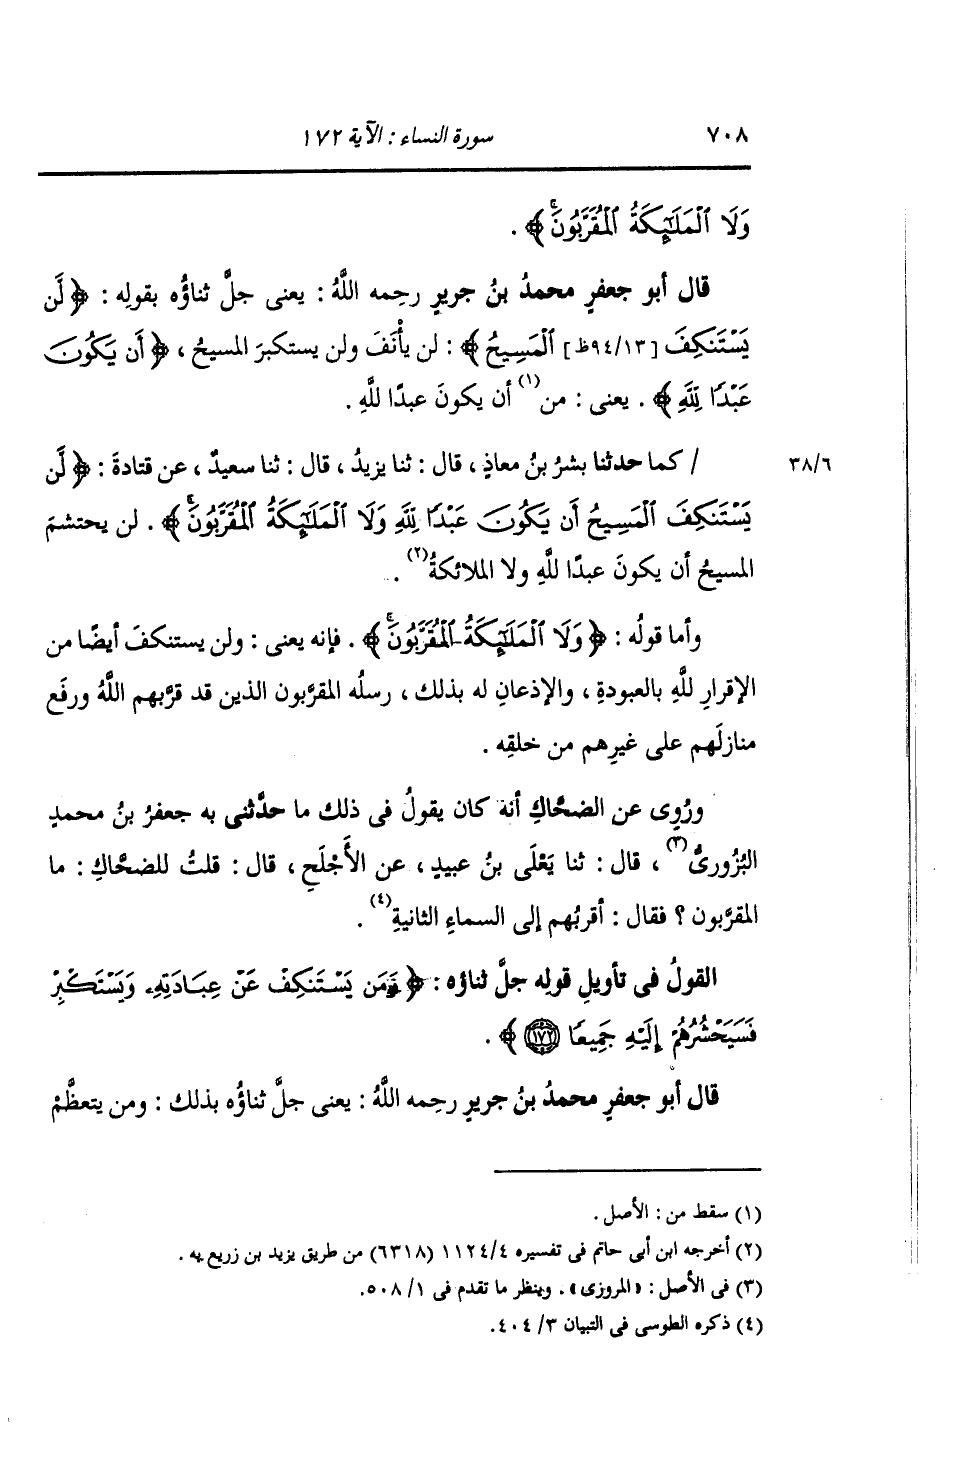 ٧٠٨ سورة النساء : الآية ١٧٢
وَلَا ٱلْمَلَٰٓئِكَةُ ٱلْمُقَرَّبُونَۚ ﴾ .
قال أبو جعفرٍ محمدُ بنُ جريرٍ رحِمه اللَّهُ : يعنى جلَّ ثناؤُه بقولِه : ﴿ لَّن
يَسْتَنكِفَ [٩٤/١٣ظ] ٱلْمَسِيحُ ﴾ : لن يأْنَفَ ولن يستكبرَ المسيحُ ، ﴿ أَن يَكُونَ
عَبْدًا لِّلَّهِ ﴾ . يعنى : من(١) أن يكونَ عبدًا للَّهِ .
/ كما حدثنا بشرُ بنُ معاذٍ ، قال : ثنا يزيدُ ، قال : ثنا سعيدٌ ، عن قتادةَ : ﴿ لَّن ٣٨/٦
يَسْتَنكِفَ ٱلْمَسِيحُ أَن يَكُونَ عَبْدًا لِّلَّهِ وَلَا ٱلْمَلَٰٓئِكَةُ ٱلْمُقَرَّبُونَۚ ﴾ . لن يحتشمَ
المسيحُ أن يكونَ عبدًا للَّهِ ولا الملائكةُ(٢) .
وأما قولُه : ﴿ وَلَا ٱلْمَلَٰٓئِكَةُ ٱلْمُقَرَّبُونَۚ ﴾ . فإنه يعنى : ولن يستنكفَ أيضًا من
الإقرارِ للَّهِ بالعبودةِ ، والإذعانِ له بذلك ، رسلُه المقرَّبون الذين قد قرَّبهم اللَّهُ ورفَع
منازلَهم على غيرِهم من خلقِه .
ورُوِى عن الضحَّاكِ أنه كان يقولُ فى ذلك ما حدَّثنى به جعفرُ بنُ محمدٍ
البُزُورىُّ(٣) ، قال : ثنا يَعْلَى بنُ عبيدٍ ، عن الأَجْلَحِ ، قال : قلتُ للضحَّاكِ : ما
المقرَّبون ؟ فقال : أقربُهم إلى السماءِ الثانيةِ(٤) .
القولُ فى تأويلِ قولِه جلَّ ثناؤه : ﴿ وَمَن يَسْتَنكِفْ عَنْ عِبَادَتِهِۦ وَيَسْتَكْبِرْ
فَسَيَحْشُرُهُمْ إِلَيْهِ جَمِيعًا ١٧٢ ﴾ .
قال أبو جعفرٍ محمدُ بنُ جريرٍ رحِمه اللَّهُ : يعنى جلَّ ثناؤُه بذلك : ومن يتعظَّمْ
(١) سقط من : الأصل .
(٢) أخرجه ابن أبى حاتم فى تفسيره ١١٢٤/٤ (٦٣١٨) من طريق يزيد بن زريع به .
(٣) فى الأصل : «المروزى» . وينظر ما تقدم فى ١/ ٥٠٨.
(٤) ذكره الطوسى فى التبيان ٣/ ٤٠٤.